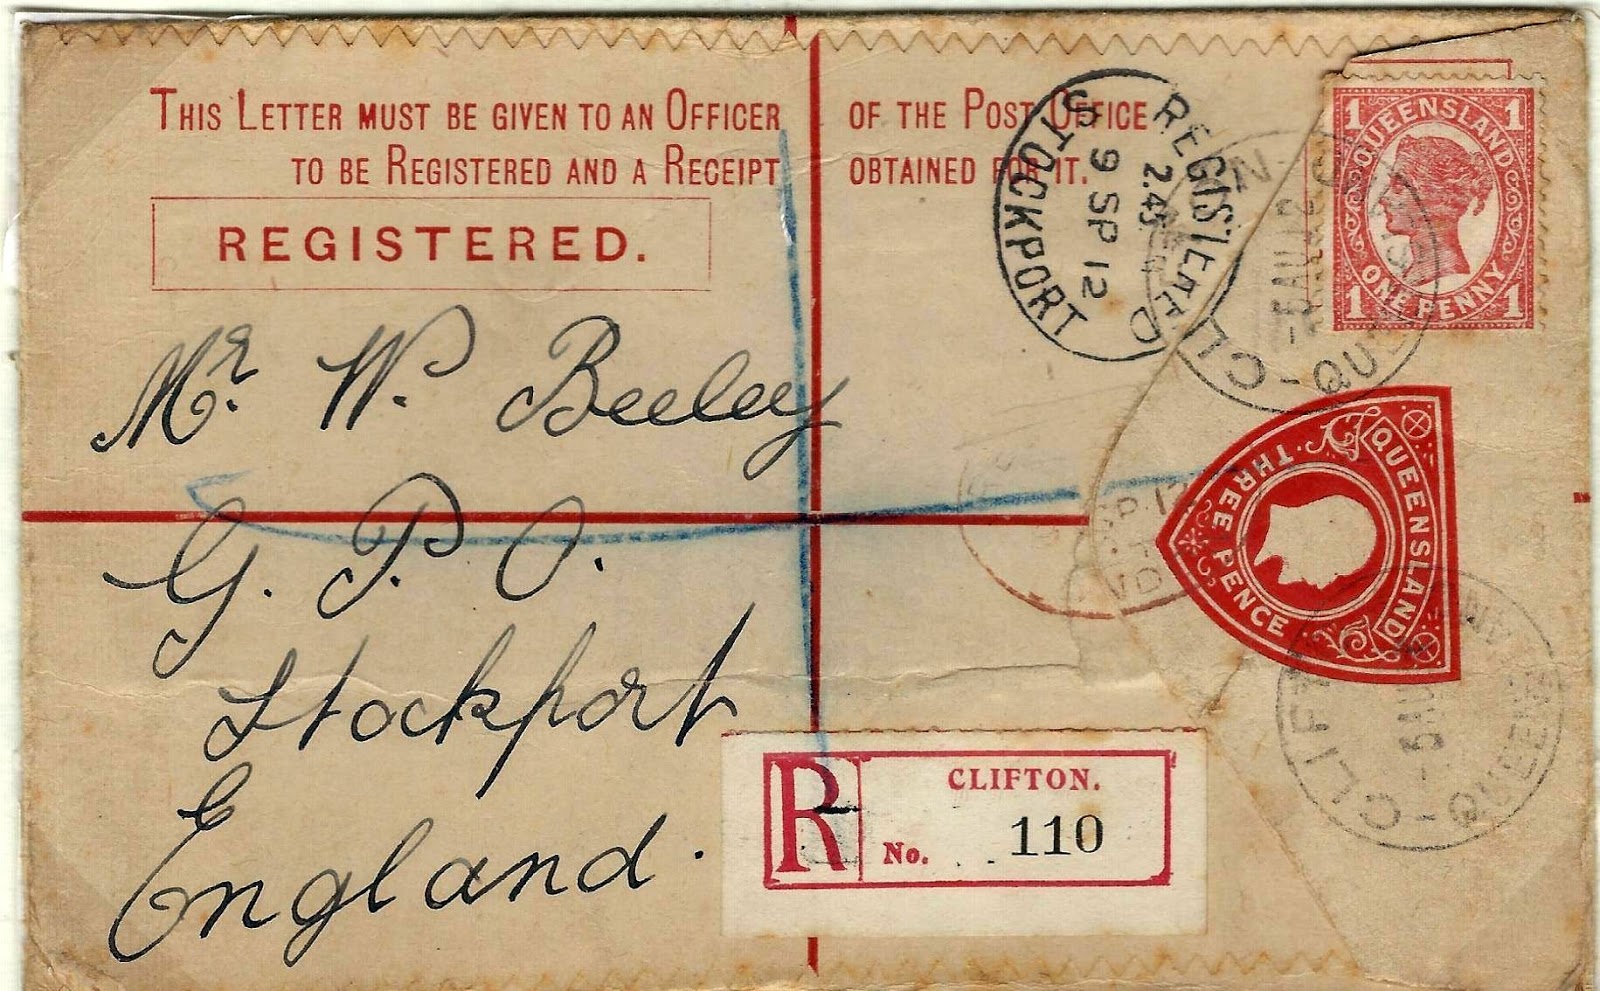 THIS LETTER MUST BE GIVEN TO AN OFFICER OF THE POST OFFICE
TO BE REGISTERED AND A RECEIPT OBTAINED FOR IT.
REGISTERED.
REGISTERED
2.45
9 SP 12
STOCKPORT
QUEENSLAND
1 1
ONE PENNY
1 1
Mr. W. Beeley
G. P. O.
Stockport
England.
QUEENSLAND
THREE PENCE
R
CLIFTON.
No. 110